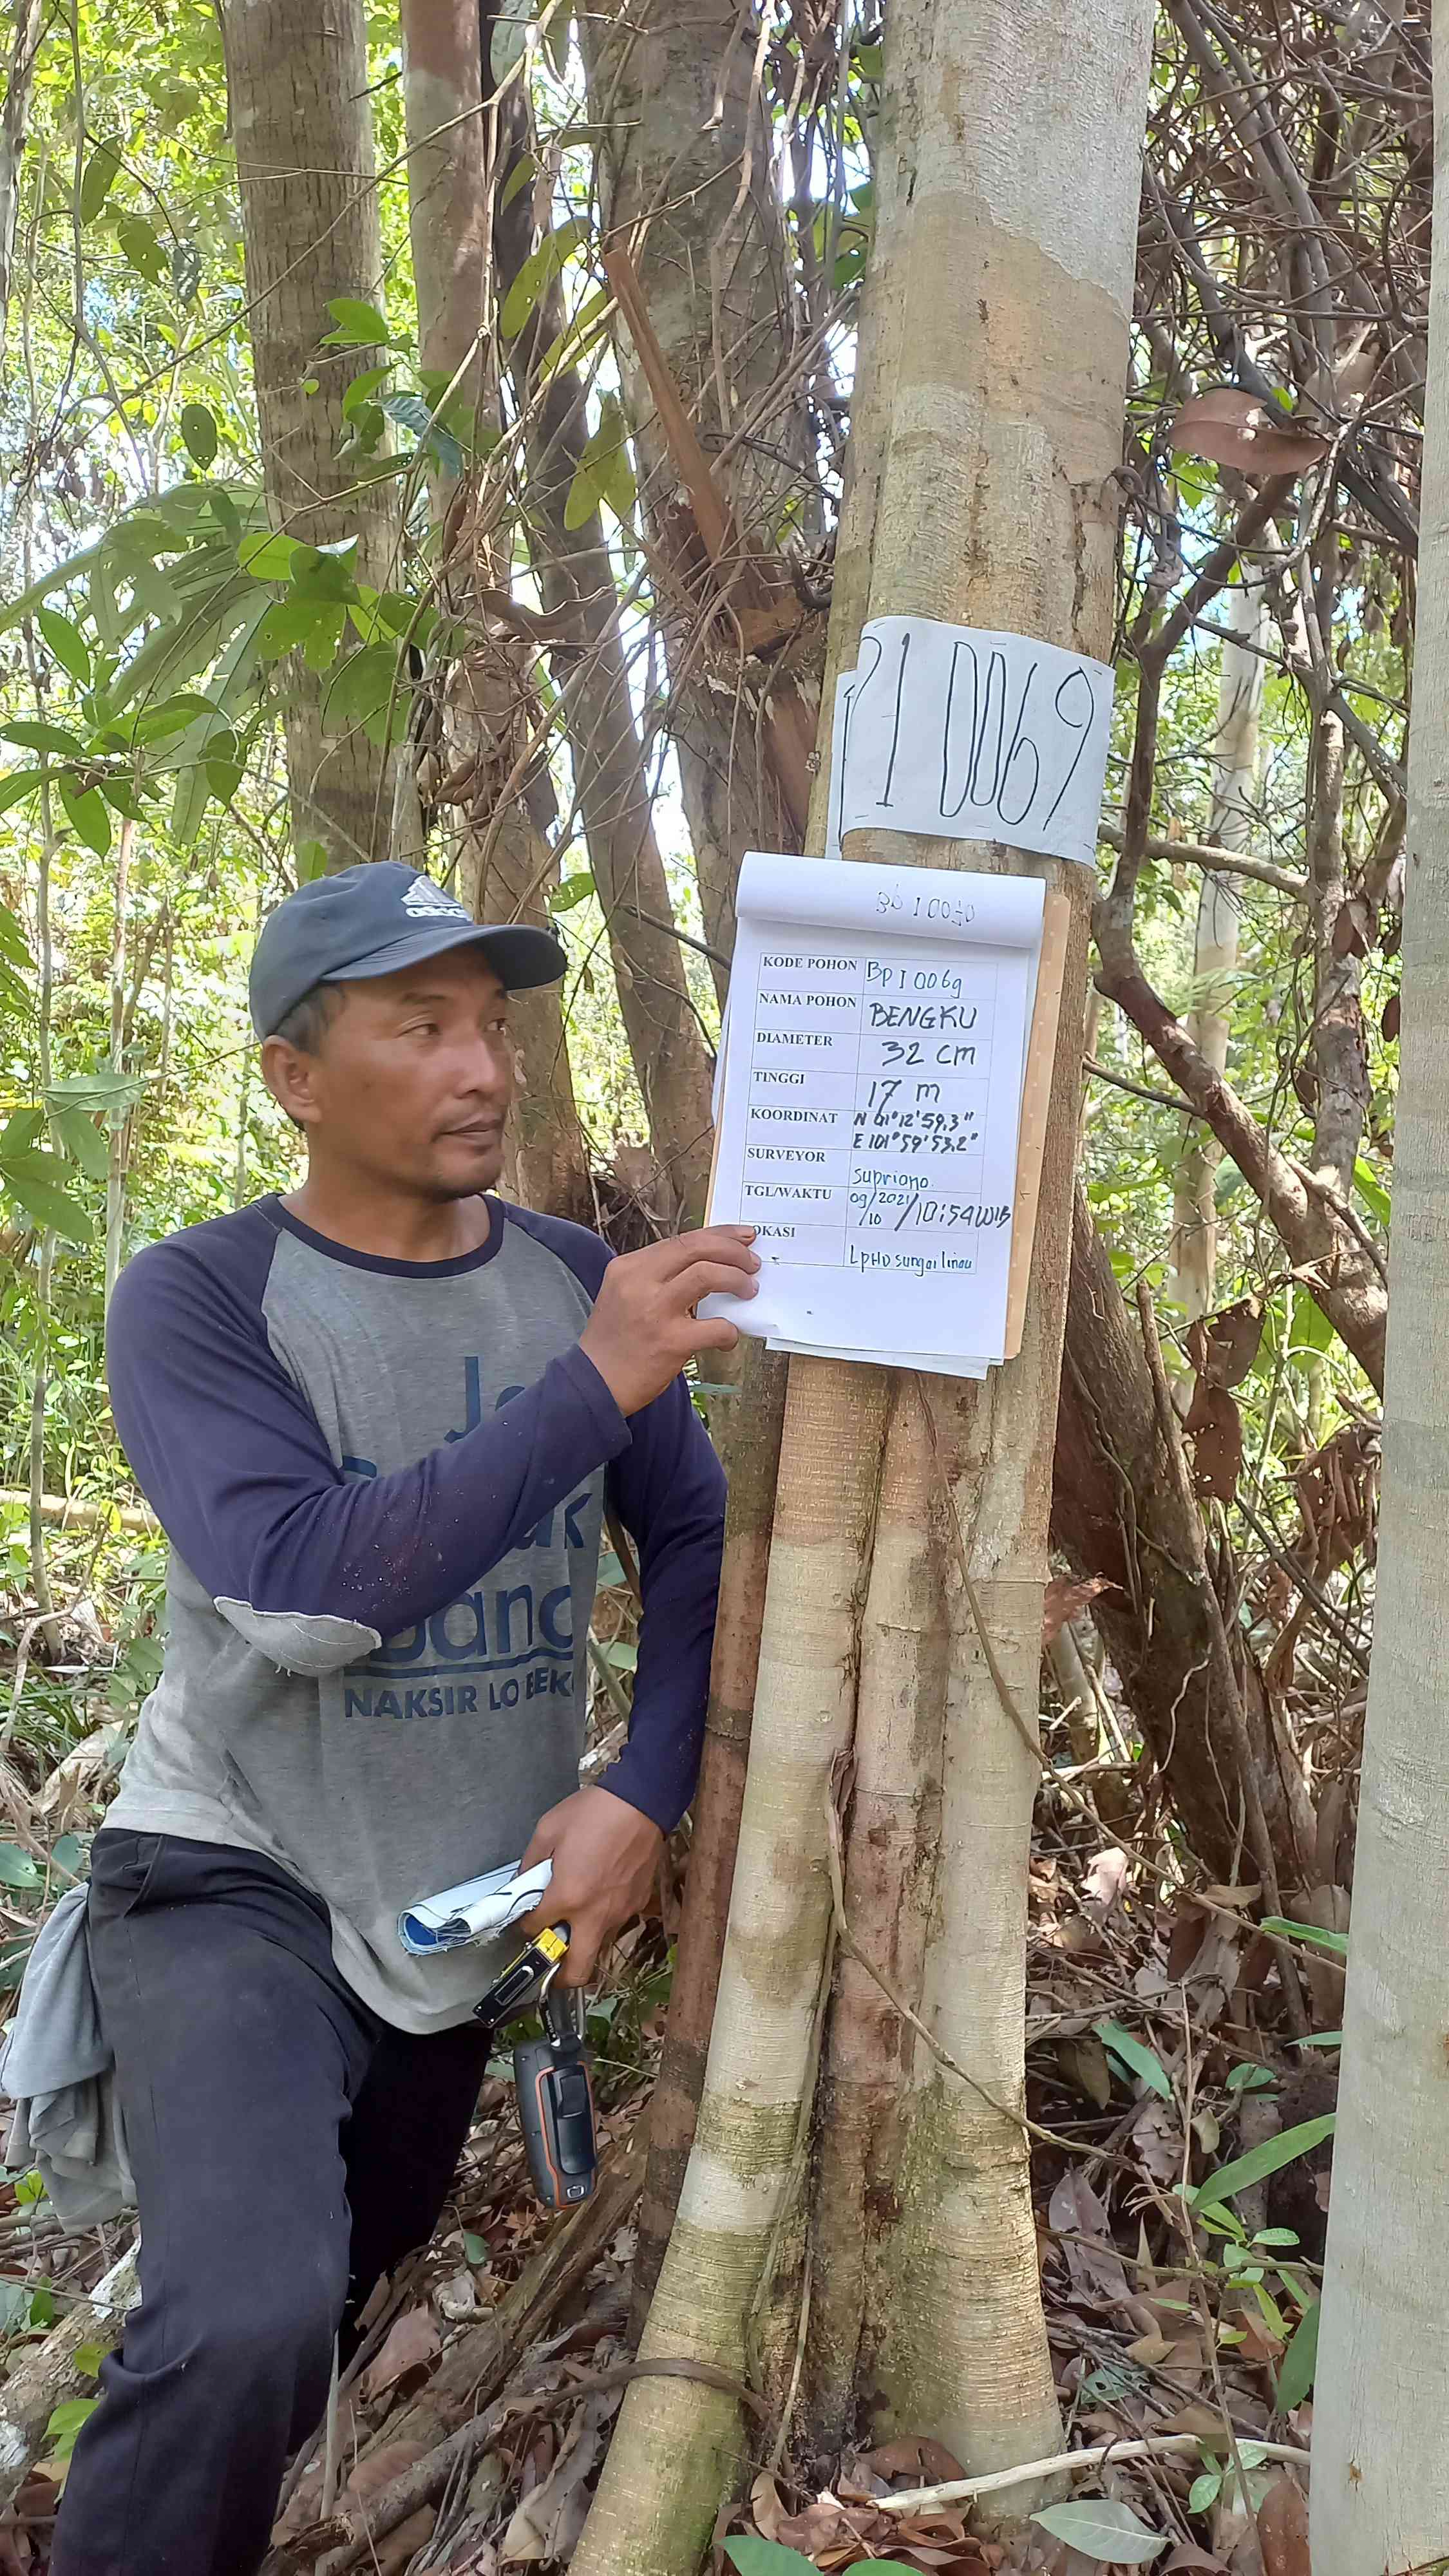 P1 0069
adidas
Bb I 0070
KODE POHON BP I 0069
NAMA POHON BENGKU
DIAMETER 32 cm
TINGGI 17 m
KOORDINAT N 01°12'59.3"
E 101°59'53.2"
SURVEYOR Supriono.
TGL/WAKTU 09/2021
/10 /10:54 WIB
OKASI LpHD sungai linau
NAKSIR LO